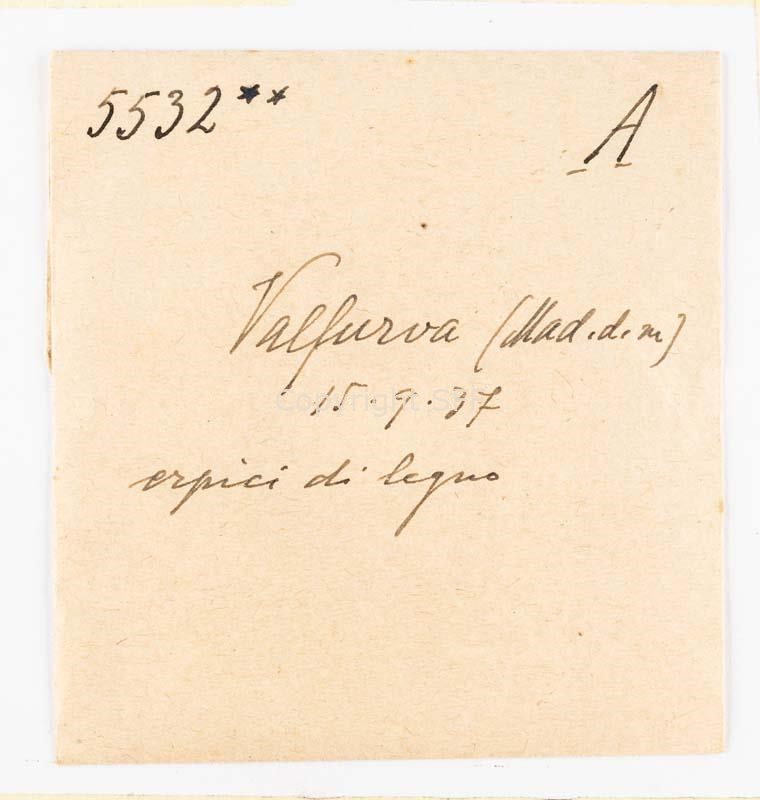 5532**
A
Valfurva (Mad.d.m)
15.9.37
erpici di legno
Copyright